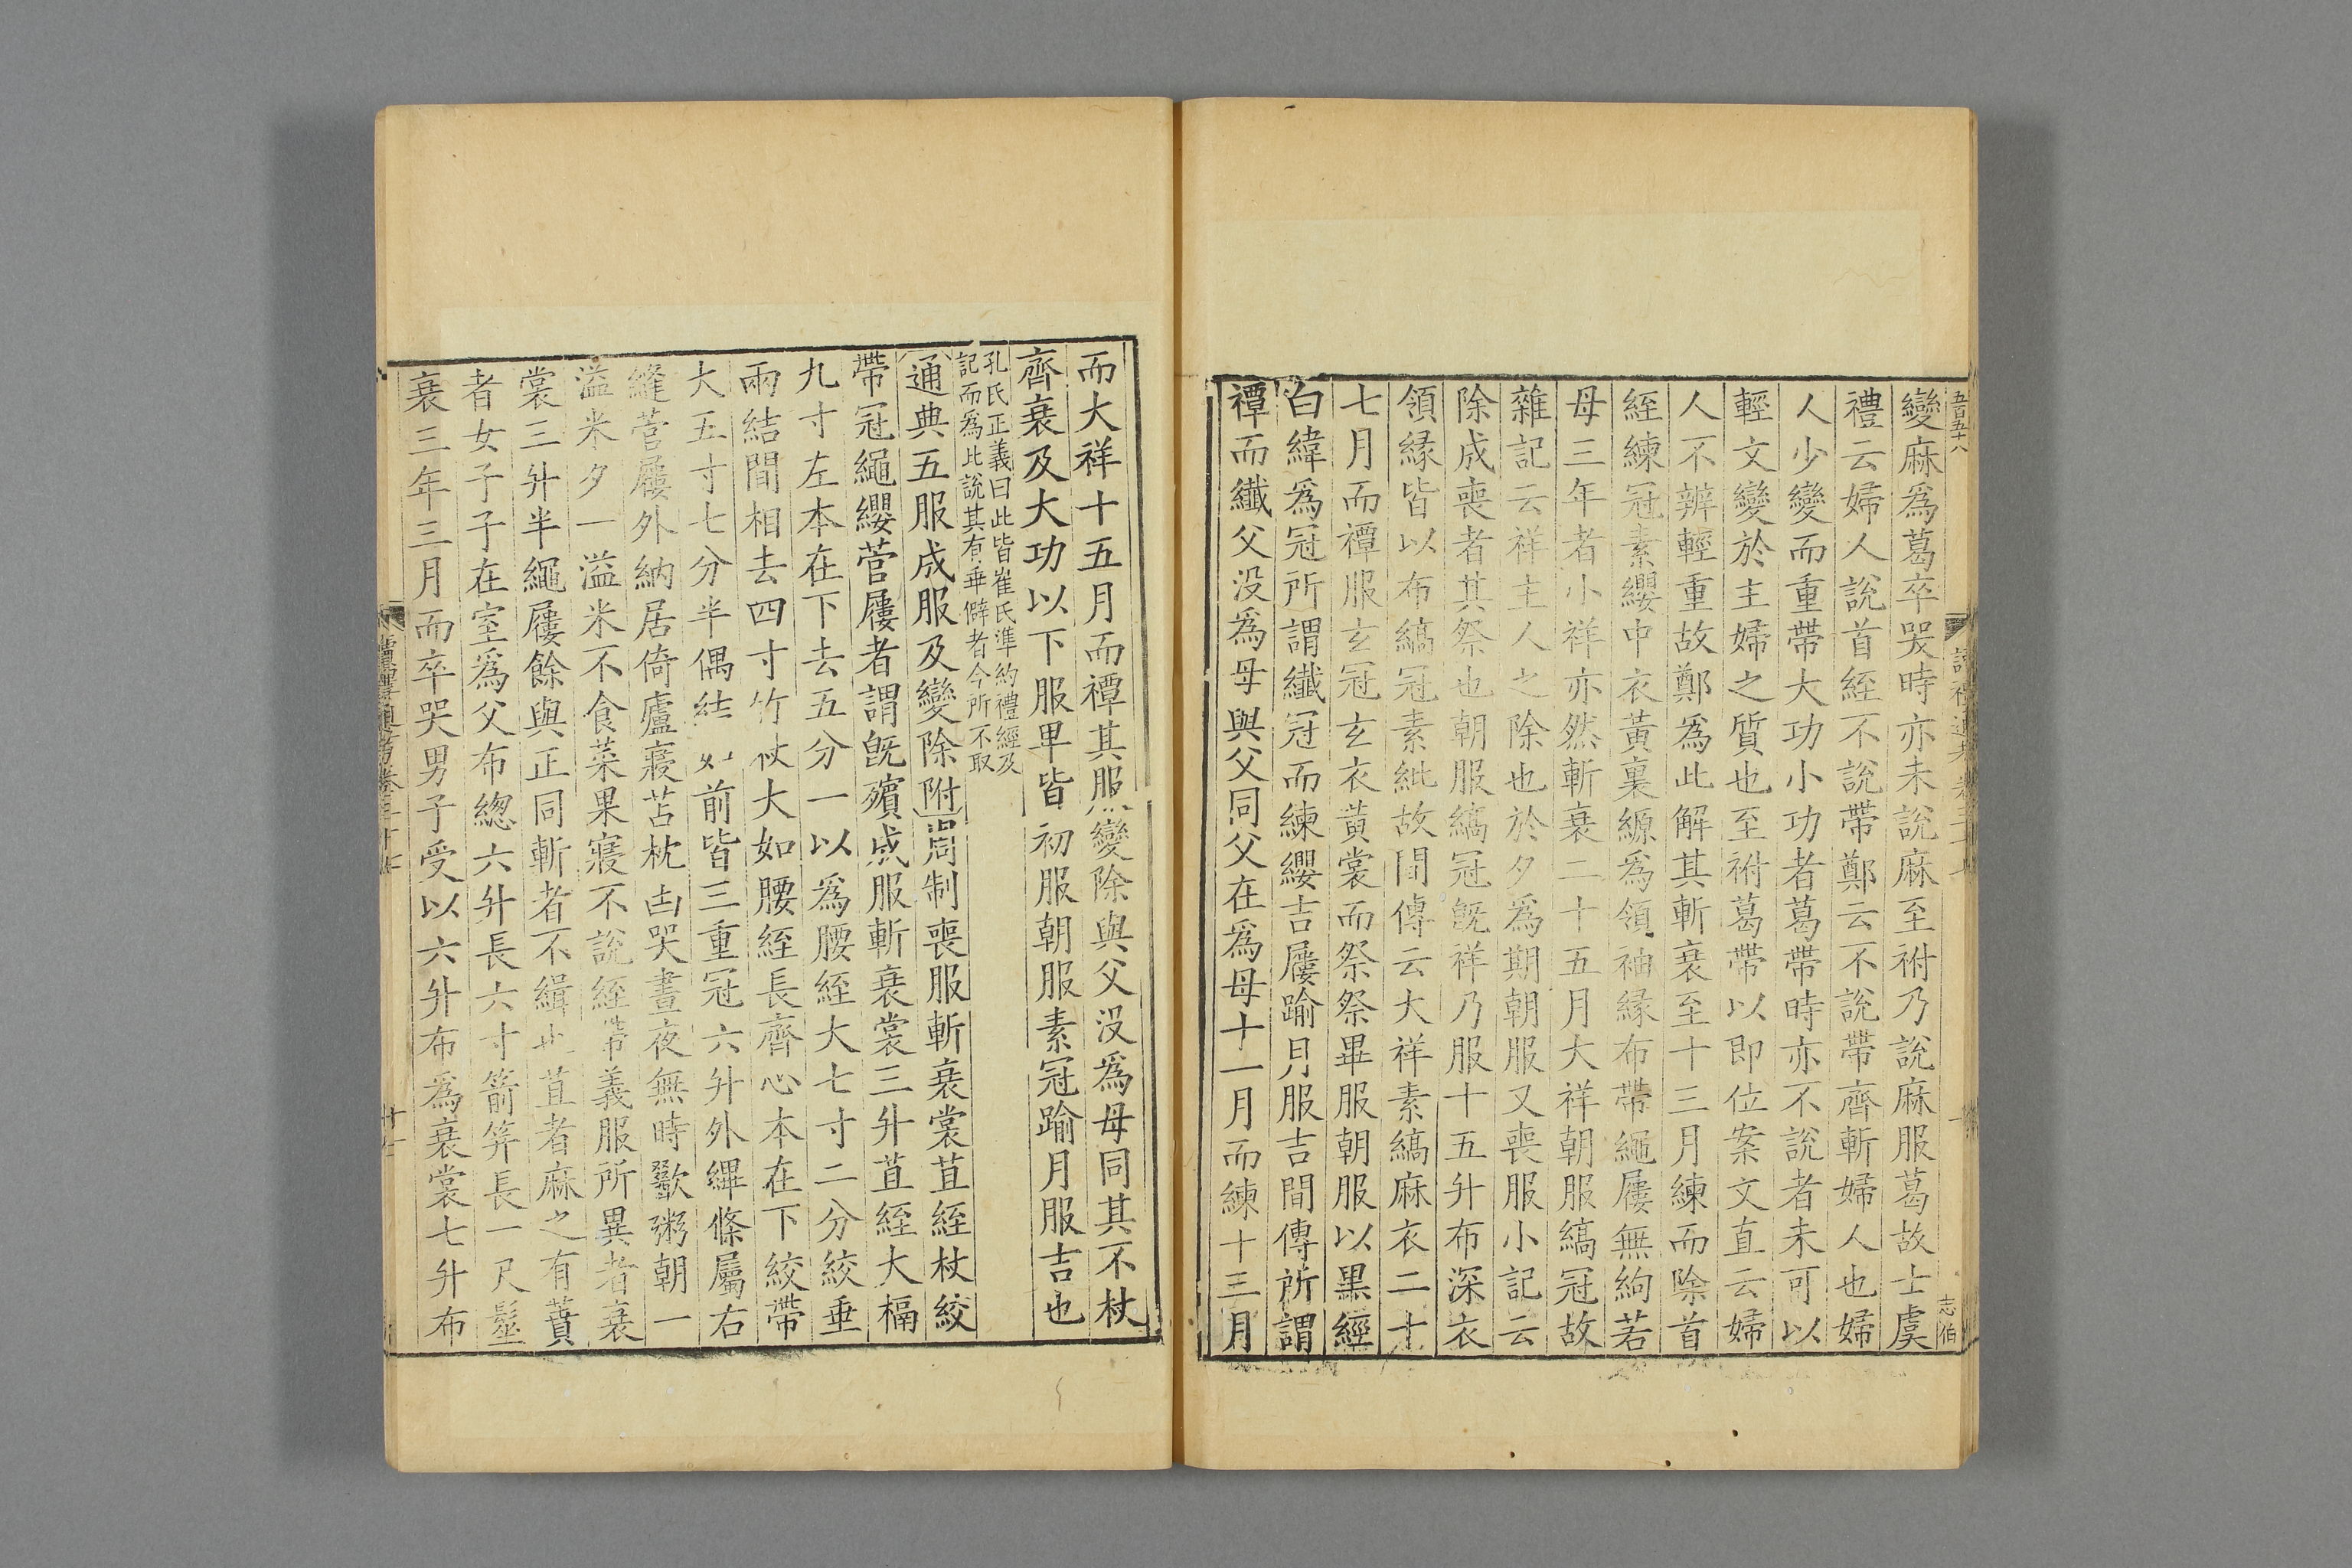 五百五十八
志伯
變麻爲葛卒哭時亦未說麻至祔乃說麻服葛故士虞
禮云婦人說首絰不說帶鄭云不說帶齊斬婦人也婦
人少變而重帶大功小功者葛帶時亦不說者未可以
輕文變於主婦之質也至祔葛帶以即位案文直云婦
人不辨輕重故鄭爲此解其斬衰至十三月練而除首
絰練冠素纓中衣黃裏縓爲領袖緣布帶繩屨無絇若
母三年者小祥亦然斬衰二十五月大祥朝服縞冠故
雜記云祥主人之除也於夕爲期朝服又喪服小記云
除成喪者其祭也朝服縞冠旣祥乃服十五升布深衣
領緣皆以布縞冠素紕故閒傳云大祥素縞麻衣二十
七月而禫服玄冠玄衣黃裳而祭祭畢服朝服以黑經
白緯爲冠所謂纖冠而練纓吉屨踰月服吉間傳所謂
禫而纖父没爲母與父同父在爲母十一月而練十三月
而大祥十五月而禫其服變除與父没爲母同其不杖
齊衰及大功以下服畢皆初服朝服素冠踰月服吉也
孔氏正義曰此皆崔氏準約禮經及
記而爲此說其有乖僻者今所不取
通典五服成服及變除附周制喪服斬衰裳苴絰杖絞
帶冠繩纓菅屨者謂旣殯成服斬衰裳三升苴絰大槅
九寸左本在下去五分一以爲腰絰大七寸二分絞垂
兩結間相去四寸竹杖大如腰絰長齊心本在下絞帶
大五寸七分半偶結如前皆三重冠六升外縪條屬右
縫菅屨外納居倚廬寢苫枕凷哭晝夜無時歠粥朝一
溢米夕一溢米不食菜果寢不說絰帶義服所異者衰
裳三升半繩屨餘與正同斬者不緝也苴者麻之有蕡
者女子子在室爲父布總六升長六寸箭筓長一尺髽
衰三年三月而卒哭男子受以六升布爲衰裳七升布